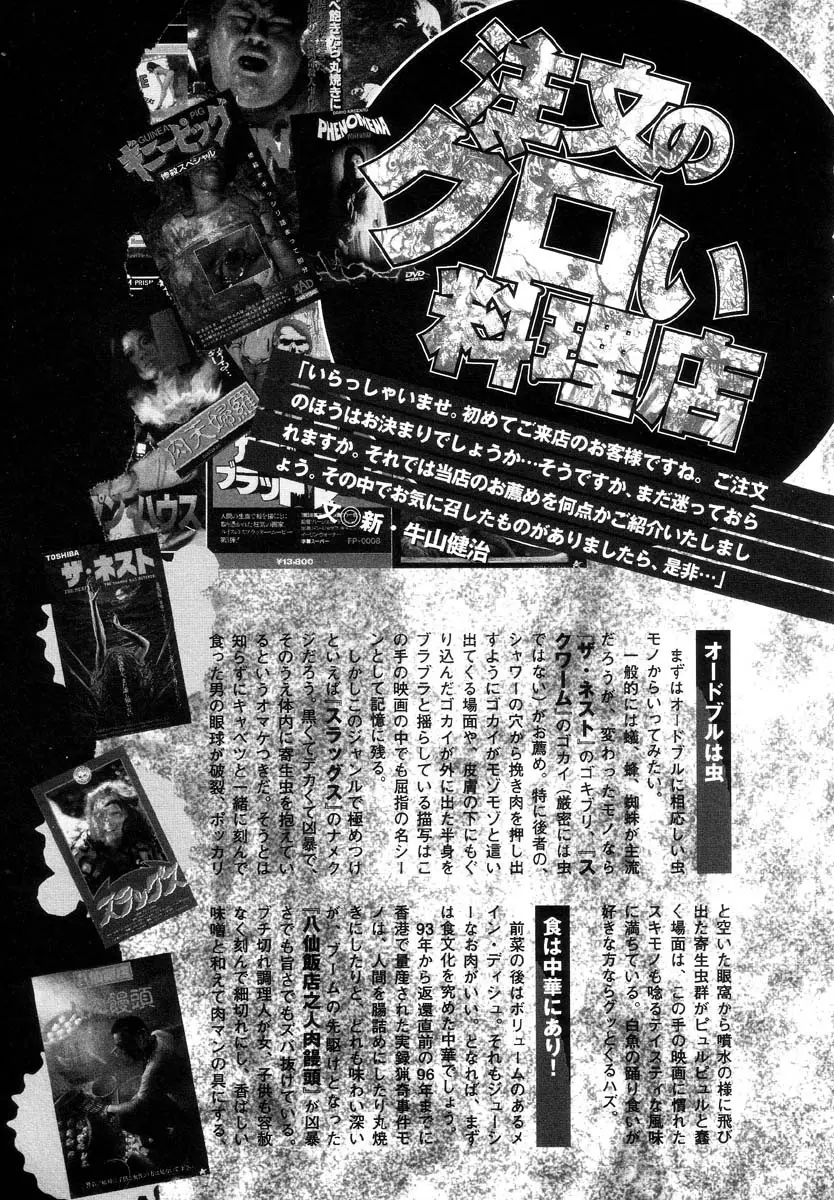 注文の
グロい
料理店
「いらっしゃいませ。初めてご来店のお客様ですね。ご注文
のほうはお決まりでしょうか…そうですか、まだ迷っておら
れますか。それでは当店のお薦めを何点かご紹介いたしまし
ょう。その中でお気に召したものがありましたら、是非…」
文◎新・牛山健治
オードブルは虫
まずはオードブルに相応しい虫
モノからいってみたい。
一般的には蟻、蜂、蜘蛛が主流
だろうが、変わったモノなら
『ザ・ネスト』のゴキブリ、『ス
クワーム』のゴカイ（厳密には虫
ではない）がお薦め。特に後者の、
シャワーの穴から挽き肉を押し出
すようにゴカイがモゾモゾと這い
出てくる場面や、皮膚の下にもぐ
り込んだゴカイが外に出た半身を
ブラブラと揺らしている描写はこ
の手の映画の中でも屈指の名シー
ンとして記憶に残る。
しかしこのジャンルで極めつけ
といえば『スラッグス』のナメク
ジだろう。黒くてデカくて凶暴で、
そのうえ体内に寄生虫を抱えてい
るというオマケつきだ。そうとは
知らずにキャベツと一緒に刻んで
食った男の眼球が破裂、ポッカリ
と空いた眼窩から噴水の様に飛び
出た寄生虫群がピュルピュルと蠢
く場面は、この手の映画に慣れた
スキモノも唸るテイスティな風味
に満ちている。白魚の踊り食いが
好きな方ならグッとくるハズ。
食は中華にあり！
前菜の後はボリュームのあるメ
イン・ディシュ。それもジューシ
ーなお肉がいい。となれば、まず
は食文化を究めた中華でしょう。
93年から返還直前の96年までに
香港で量産された実録猟奇事件モ
ノは、人間を腸詰めにしたり丸焼
きにしたりと、どれも味わい深い
が、ブームの先駆けとなった
『八仙飯店之人肉饅頭』が凶暴
さでも旨さでもズバ抜けている。
ブチ切れ調理人が女、子供も容赦
なく刻んで細切れにし、香ばしい
味噌と和えて肉マンの具にする
べ飽きたら、丸焼きに
GUINEA PIG
ギニーピッグ
惨殺スペシャル
DARIO ARGENTO
PHENOMENA
DVD
PRISM
肉天婦羅
ハウス
ブラッド
FP-0008
¥13,800
TOSHIBA
ザ・ネスト
スラッグス
饅頭